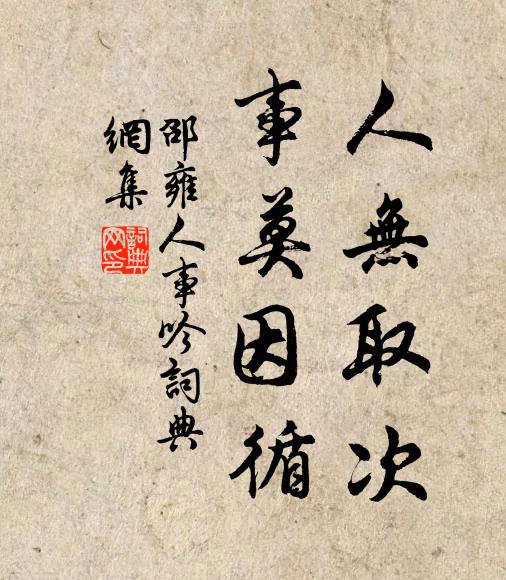 人無取次
事莫因循
邵雍人事吟詞典
網集
詞典網印